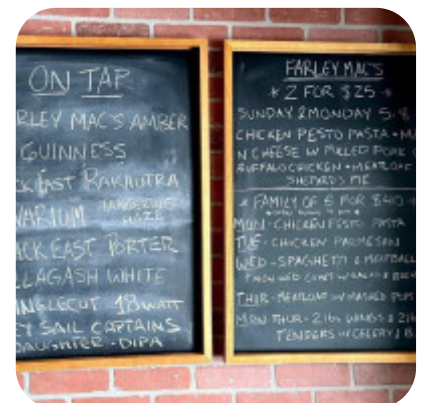 ON TAP
RLEY MAC'S AMBER
GUINNESS
CK EAST RAKAUTRA
VARIUM TANGERINE HAZE
CK EAST PORTER
LLAGASH WHITE
NGLECUT 18 WATT
Y SAIL CAPTAINS
DAUGHTER - DIPA
FARLEY MAC'S
* 2 FOR $25 *
SUNDAY & MONDAY 5-8
CHICKEN PESTO PASTA + MA
N CHEESE W PULLED PORK
BUFFALO CHICKEN + MEATLOAF
SHEPARDS PIE
* FAMILY OF 5 FOR $40 *
MON - CHICKEN PESTO PASTA
TUE - CHICKEN PARMESON
WED - SPAGHETTI & MEATBALL
THUR - MEATLOAF W/ MASHED POTS
MON THUR - 2 lbs WINGS & 2 lb
TENDERS W/ CELERY